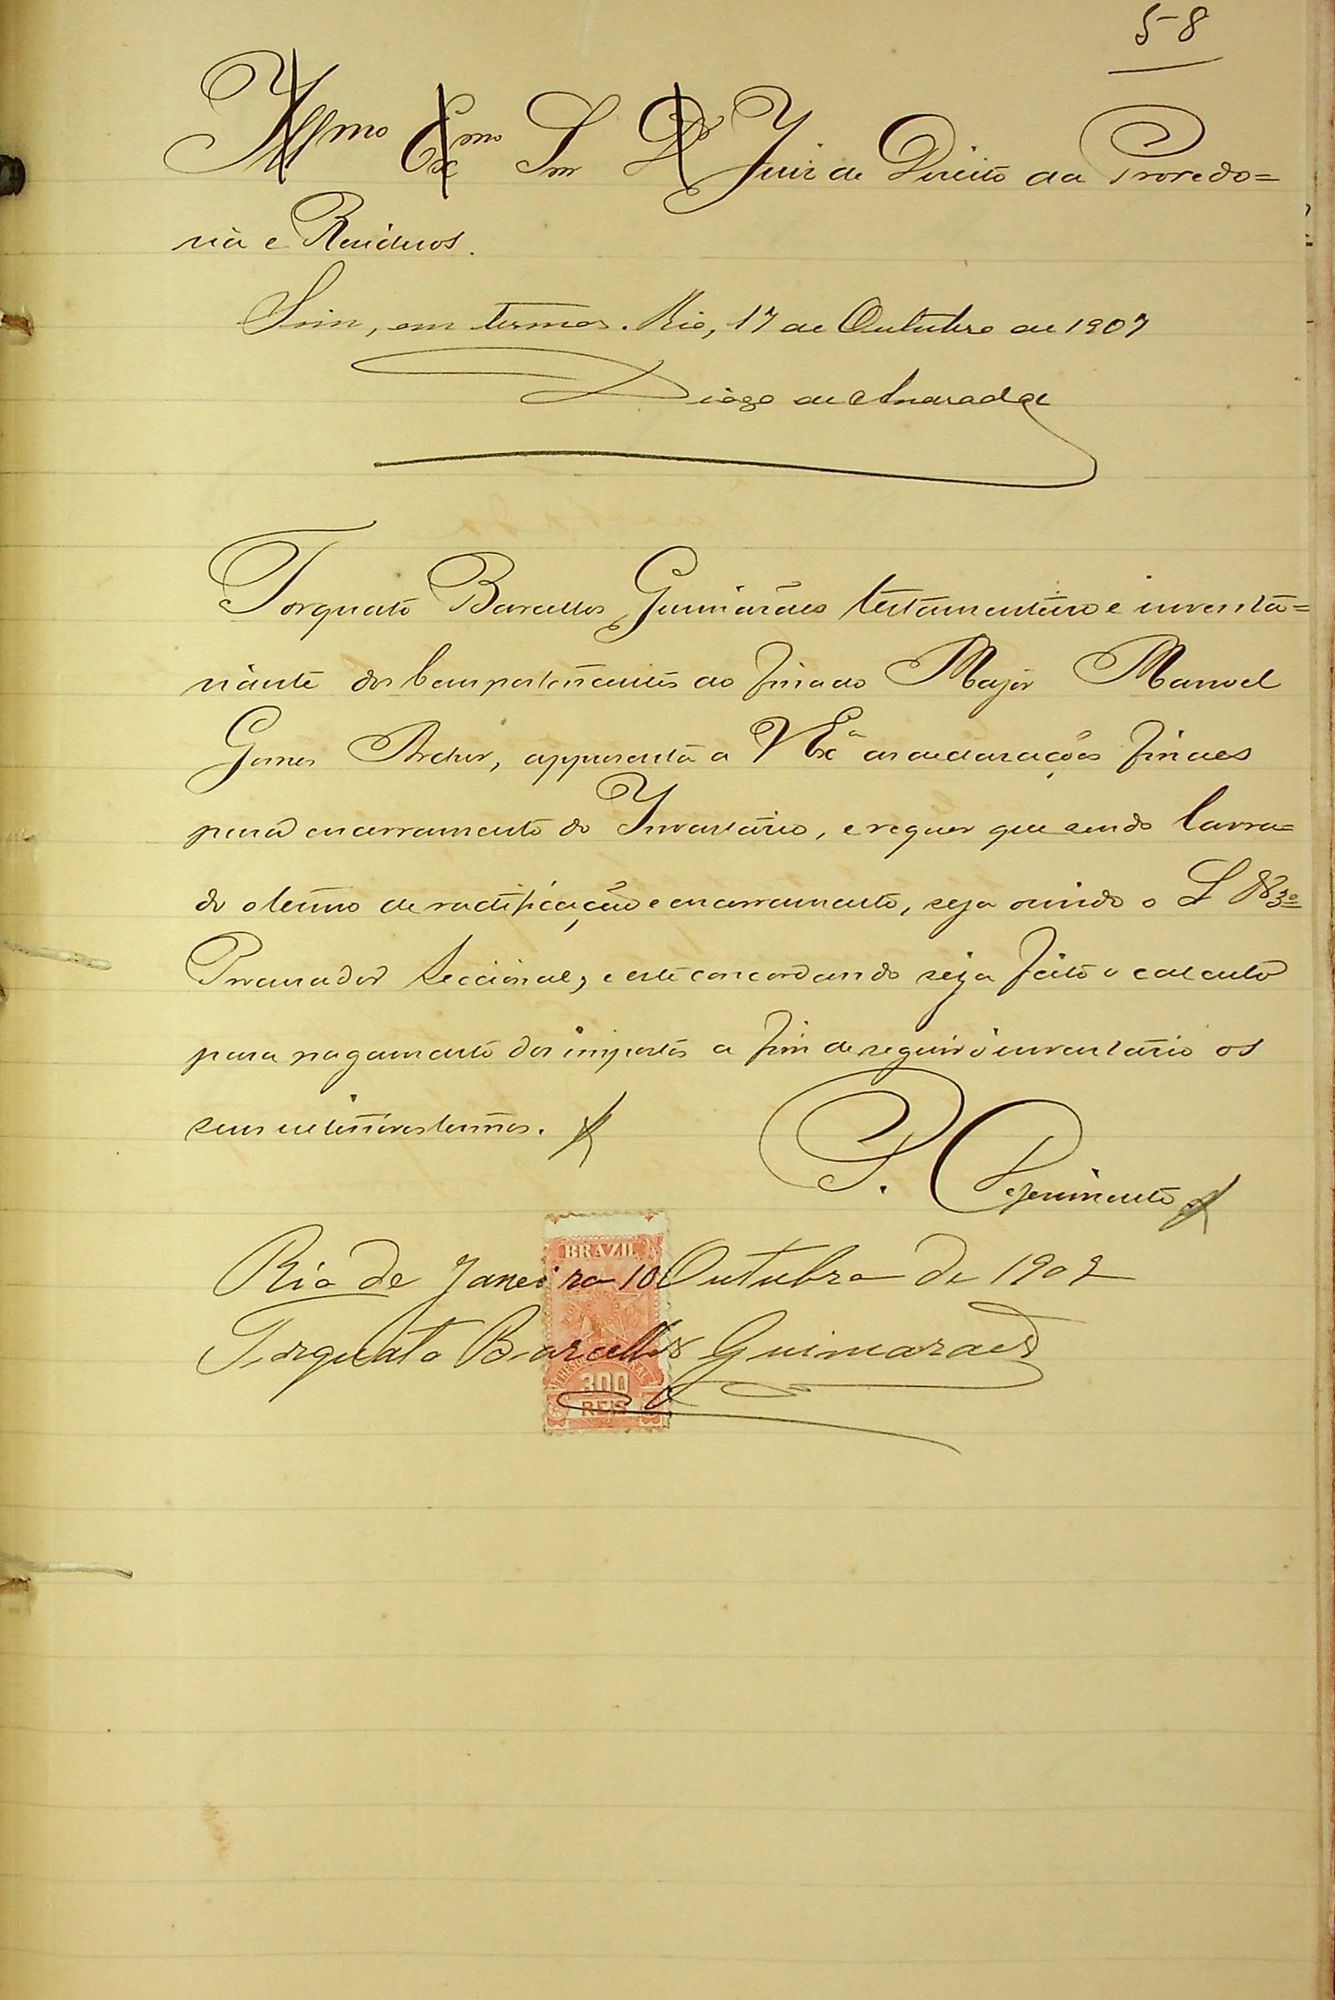 58
Illmo Exmo Snr Dr Juiz de Direito da Provedo=
ria e Residuos.
Sim, em termos. Rio, 17 de Outubro de 1907
Diogo de Andrade
Torquato Barcellos Guimarães testamenteiro e inventa=
riante dos bens pertencentes ao finado Major Manoel
Gomes Archer, appresenta a V Exª as declarações finaes
para encerramento do Inventario, e requer que sendo lavra=
do o termo de ractificação e encerramento, seja ouvido o S Dr 3º
Procurador Seccional, e este concordando seja feito o calculo
para pagamento dos impostos a fim de seguir o inventario os
seus ulteriores termos.
P. Deferimento
Rio de Janeiro 10 Outubro de 1907
Torquato Barcellos Guimaraes
BRAZIL
300
REIS